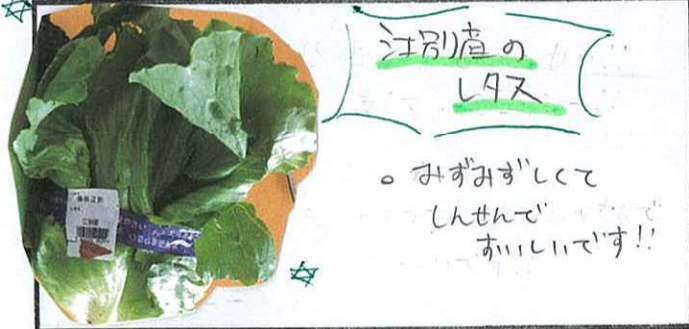 江別産の
レタス
。みずみずしくて
しんせんで
おいしいです!!